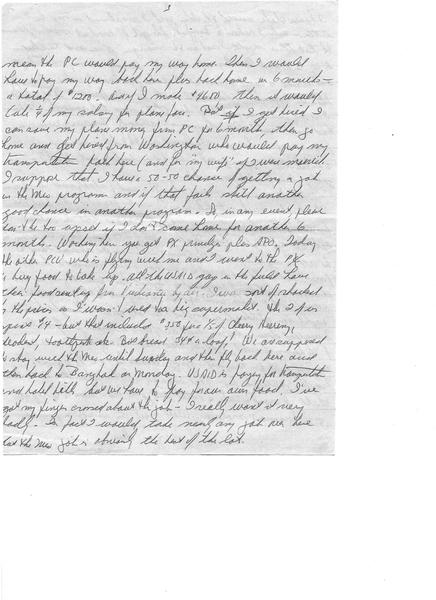 3
mean the PC would pay my way home. Then I would
have to pay my way back here plus back home in 6 months -
a total of $1200. And if I made $4600. then it would
take ¼ of my salary for plane fare. But if I get hired I
can save my plane money from PC for 6 months then go
home and get hired from Washington who would pay my
transportation back here (and for "my wife" if I were married.
I suppose that I have a 50-50 chance of getting a job
in the Meo program and if that fails still another
good chance in another program. So, in any event, please
don't be too upset if I don't come home for another 6
months. Working here you get PX privileges plus APO. Today
the other PCV who is flying with me and I went to the PX
to buy food to take up. All the USAID guys in the field have
their food sent up from by air. I was sort of shocked
at the prices as I wasn't used to a big supermarket. The 2 of us
spent $ - but that included $3.50 for ½ of Cherry Heering,
deodorant, toothpaste etc. But bread 34¢ a loaf! We are supposed
to stay with the Meo until Sunday and then fly back here and
then back to Bangkok on Monday. USAID is paying for transportation
and hotel bills but we have to pay for our own food. I've
got my fingers crossed about the job - I really want it very
badly. In fact I would take nearly any job over here
but the Meo job is obviously the best of the lot.